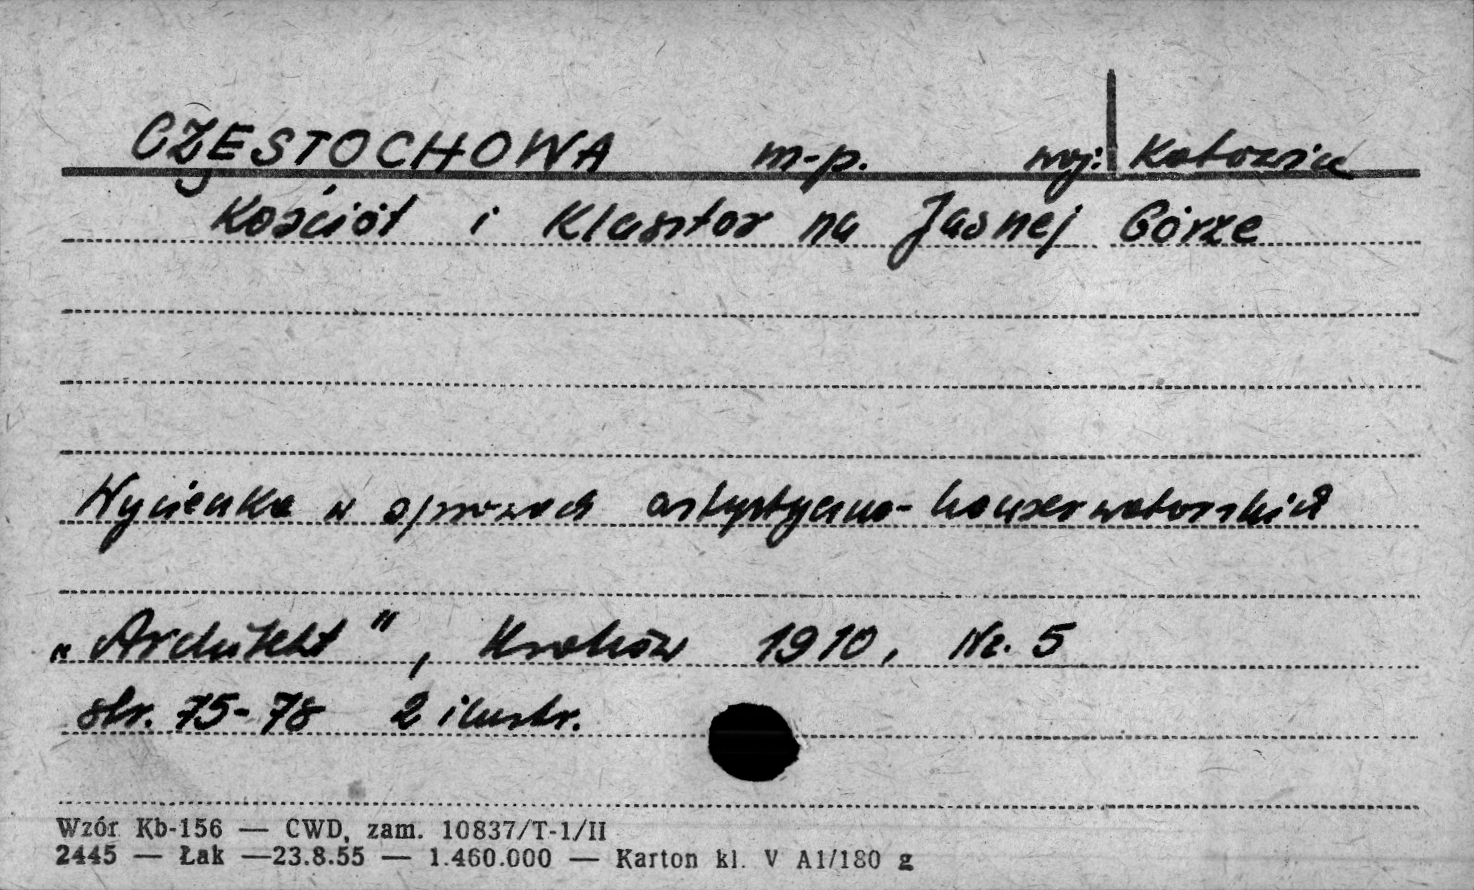 CZĘSTOCHOWA m-p. woj: Katowice
Kościół i Klasztor na Jasnej Górze
Wycieczka w sprawach artystyczno-konserwatorskich
„Architekt”, Kraków 1910, Nr. 5
str. 75-78 2 ilustr.
Wzór Kb-156 — CWD, zam. 10837/T-1/II
2445 — Łak —23.8.55 — 1.460.000 — Karton kl. V A1/180 g